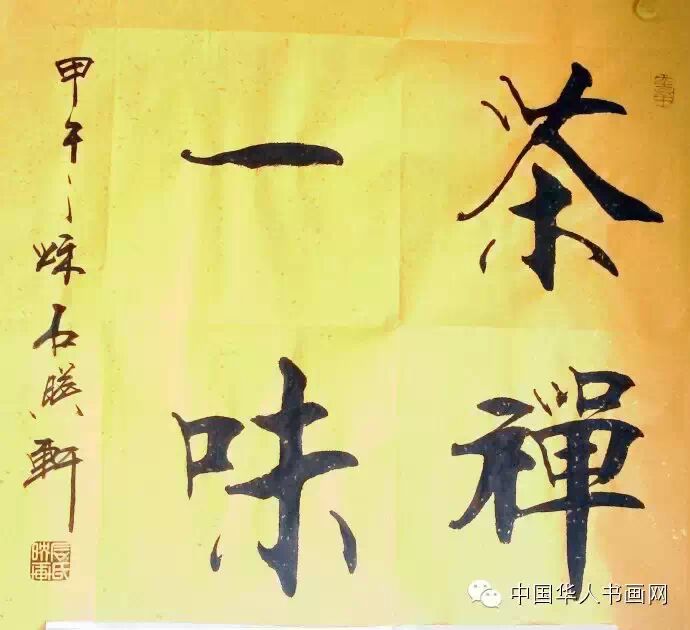 茶禪
一味
甲午之秌石軒
中国华人书画网